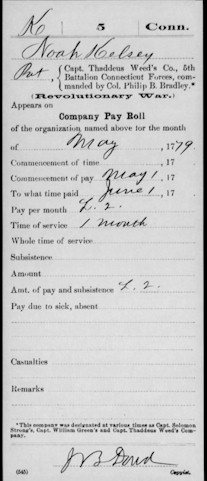 K | 5 | Conn.
Noah Kelsey
Pvt, { Capt. Thaddeus Weed's Co., 5th
Battalion Connecticut Forces, com-
manded by Col. Philip B. Bradley.*
(Revolutionary War.)
Appears on
Company Pay Roll
of the organization named above for the month
of May, 1779.
Commencement of time , 17
Commencement of pay May 1, 17
To what time paid June 1, 17
Pay per month £. 2.
Time of service 1 month
Whole time of service
Subsistence
Amount
Amt. of pay and subsistence £. 2.
Pay due to sick, absent
Casualties
Remarks
*This company was designated at various times as Capt. Solomon
Strong's, Capt. William Green's and Capt. Thaddeus Weed's Com-
pany.
J B Doud
(545) Copyist.